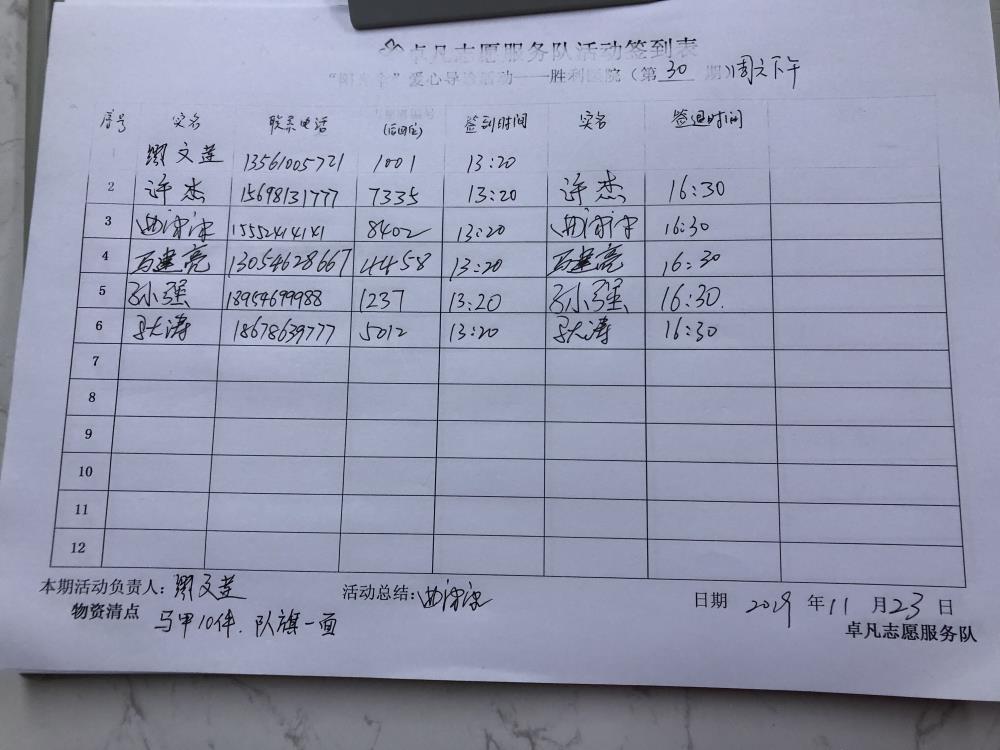 卓凡志愿服务队活动签到表
“阳光伞”爱心导诊活动——胜利医院（第 30 期）周六下午
序号 实名 联系电话 (后四位) 签到时间 实名 签退时间
1 文莲 13561005721 1001 13:20
2 许杰 15698131777 7335 13:20 许杰 16:30
3 15552414141 8402 13:20 16:30
4 万建亮 13054628667 4458 13:20 万建亮 16:30
5 孙强 18954699988 1237 13:20 孙强 16:30
6 涛 18678639777 5012 13:20 涛 16:30
7
8
9
10
11
12
本期活动负责人： 文莲 活动总结： 日期 2019 年 11 月 23 日
物资清点 马甲10件、队旗一面 卓凡志愿服务队